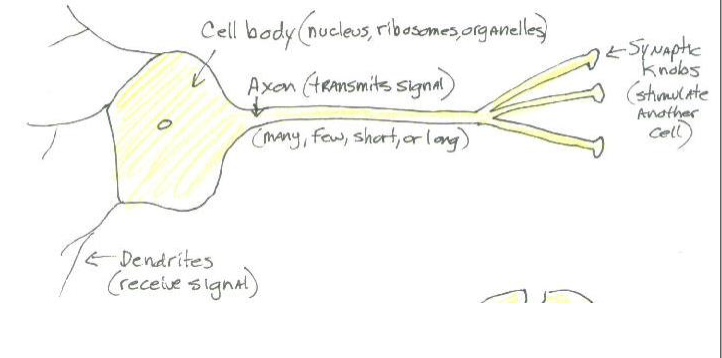 Cell body (nucleus, ribosomes, organelles)
Axon (transmits signal)
(many, few, short, or long)
Synaptic
knobs
(stimulate
another
cell)
Dendrites
(receive signal)